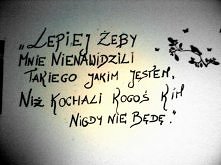 „Lepiej żeby
mnie nienawidzili
takiego jakim jestem,
niż kochali kogoś kim
nigdy nie będę."